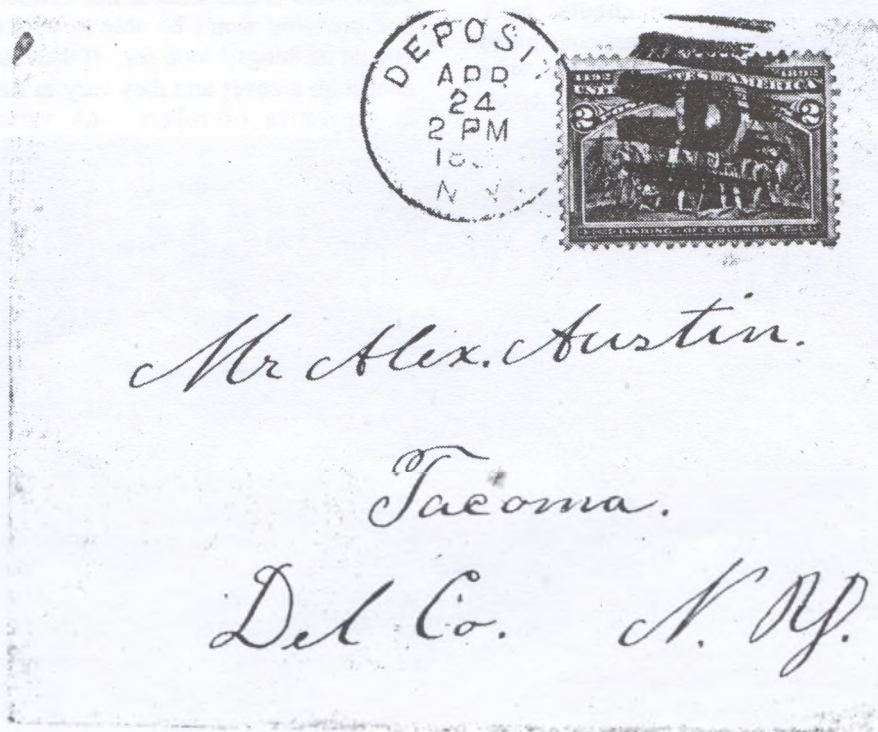 DEPOSIT
APR
24
2 PM
18
N Y
1492 1892
UNITED STATES OF AMERICA
2 2
LANDING OF COLUMBUS
Mr Alex. Austin.
Tacoma.
Del Co. N. Y.